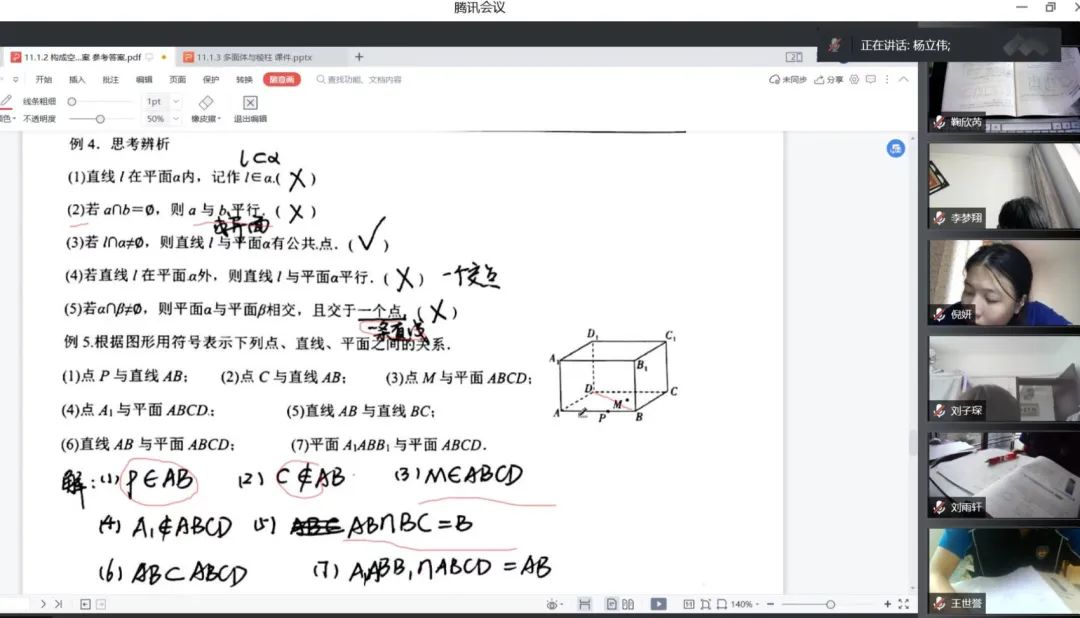 腾讯会议
正在讲话: 杨立伟;
11.1.2 构成空...案 参考答案.pdf
11.1.3 多面体与棱柱 课件.pptx
开始 插入 批注 编辑 页面 保护 转换 随意画 查找功能、文档内容 未同步 分享
线条粗细 1pt
不透明度 50% 橡皮擦 退出编辑
例 4．思考辨析
l⊂α
(1)直线 l 在平面α内，记作 l∈α.( X )
(2)若 a∩b＝∅，则 a 与 b 平行．( X )
或异面
(3)若 l∩α≠∅，则直线 l 与平面α有公共点．( √ )
(4)若直线 l 在平面α外，则直线 l 与平面α平行．( X ) 一个交点
(5)若α∩β≠∅，则平面α与平面β相交，且交于一个点．( X )
一条直线
例 5.根据图形用符号表示下列点、直线、平面之间的关系．
(1)点 P 与直线 AB； (2)点 C 与直线 AB； (3)点 M 与平面 ABCD；
(4)点 A₁ 与平面 ABCD.； (5)直线 AB 与直线 BC；
(6)直线 AB 与平面 ABCD； (7)平面 A₁ABB₁ 与平面 ABCD．
D₁ C₁
A₁ B₁
D C
M
A P B
解: (1) P∈AB (2) C∉AB (3) M∈ABCD
(4) A₁∉ABCD (5) AB∩BC=B
(6) AB⊂ABCD (7) A₁ABB₁∩ABCD=AB
140%
鞠欣芮
李梦翔
倪妍
刘子琛
刘雨轩
王世誉